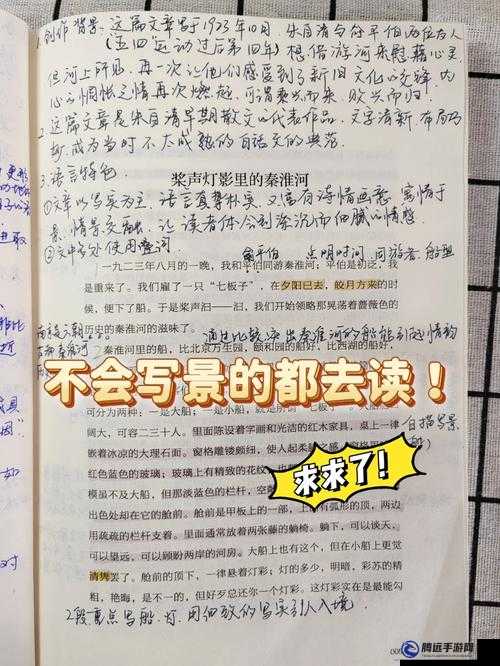 1.创作背景:这篇文章写于1923年10月.朱自清与俞平伯两位友人
(五四运动过后第四年)想借游河来慰藉心灵
但河上所见,再一次让他们感受到了新旧文化的交锋,内
心的惆怅之情再次燃起,可谓乘兴而来,败兴而归.
2.这篇文章是朱自清早期散文的代表作品.文字清新.布局巧
妙.成为当时不大成熟的白话文的典范.
3.语言特色
桨声灯影里的秦淮河
①文章以写实为主,语言真挚朴实,又富有诗情画意,寓情于
景,情景交融,让读者体会到深沉而细腻的情感.
②文中多处使用叠词.
俞平伯 点明时间.同游者.船型
一九二三年八月的一晚,我和平伯同游秦淮河;平伯是初泛,我
是重来了。我们雇了一只“七板子”,在夕阳已去,皎月方来的时
候,便下了船。于是桨声汩——汩,我们开始领略那晃荡着蔷薇色的
历史的秦淮河的滋味了。
通过比较突出秦淮河的船能引起情韵
秦淮河里的船,比北京万生园、颐和园的船好,比西湖的船好,
不会写景的都去读!
可分为两种:一是大船;一是小船,就是所谓“七板子”。大船舱口
阔大,可容二三十人。里面陈设着字画和光洁的红木家具,桌上一律
白描写景
嵌着冰凉的大理石面。窗格雕镂颇细,使人起柔腻之感。窗格里
红色蓝色的玻璃;玻璃上有精致的花纹,也
求求了!
模虽不及大船,但那淡蓝色的栏杆,空
出色处却在它的舱前。舱前是甲板上的一部,上面有弧形的顶,两边
用疏疏的栏杆支着。里面通常放着两张藤的躺椅。躺下,可以谈天,
可以望远,可以顾盼两岸的河房。大船上也有这个,但在小船上更觉
清隽罢了。舱前的顶下,一律悬着灯彩;灯的多少,明暗,彩苏的精
粗,艳晦,是不一的,但好歹总还你一个灯彩。这灯彩实在是最能勾
2段重点写船、灯.用细致的写实引人入境.
腾远手游网